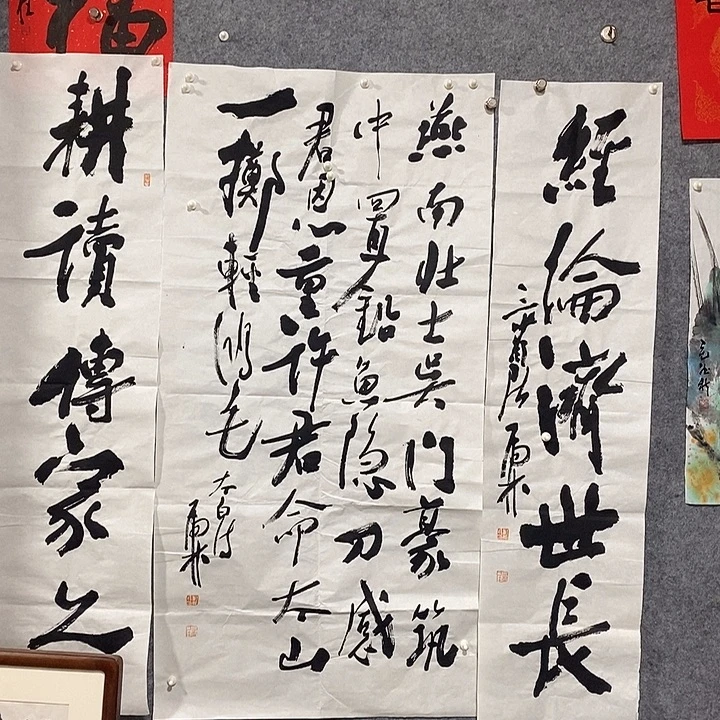 經綸濟世長
燕南壮士吳門豪筑
中置鉛魚隐刀感
君恩重許君命太山
一擲輕鴻毛
太白诗
耕讀傳家久
福